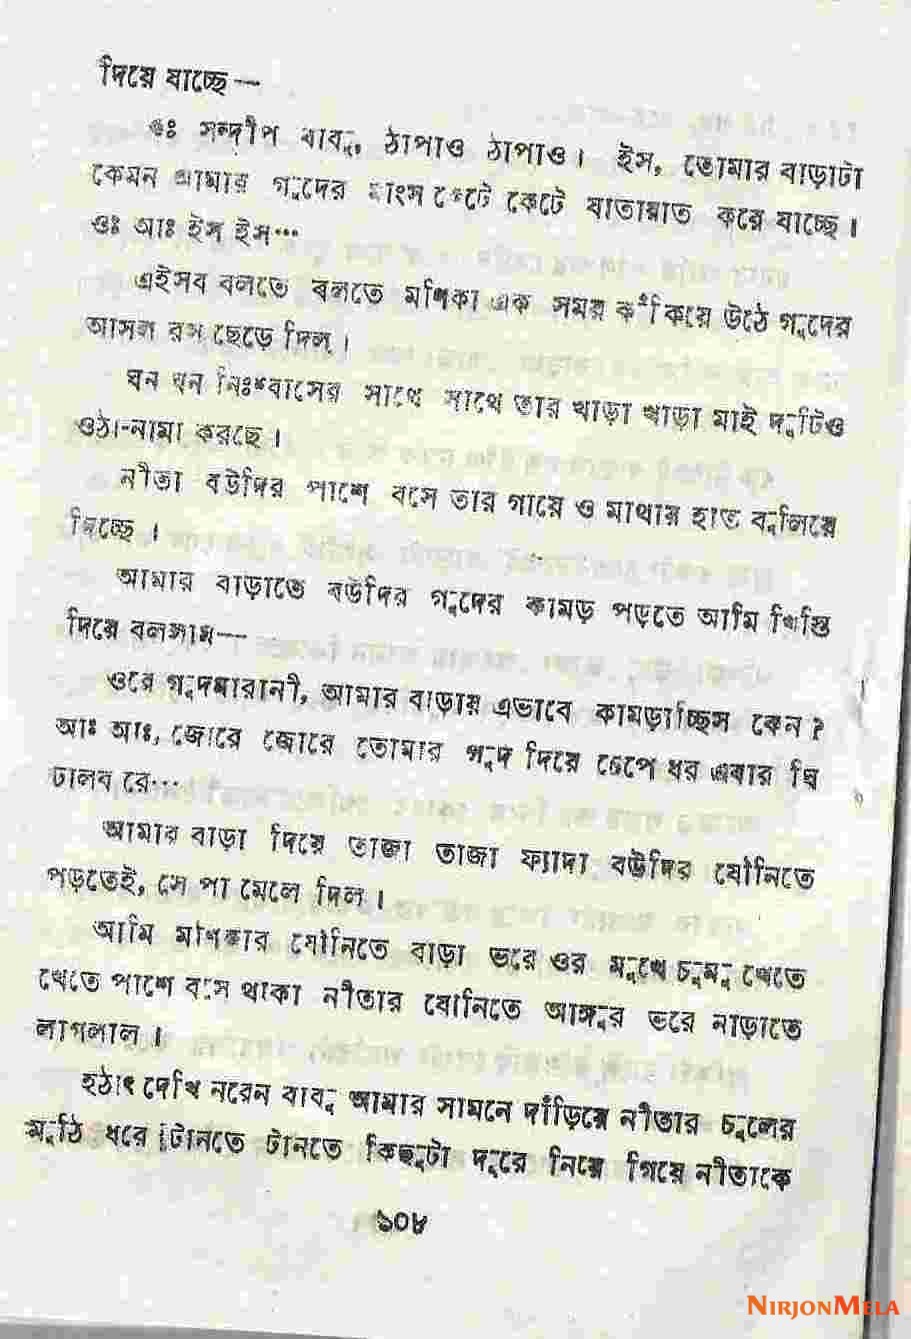 দিয়ে যাচ্ছে—
ওঃ সন্দীপ বাবু, ঠাপাও ঠাপাও। ইস, তোমার বাড়াটা
কেমন আমার গুদের মাংস কেটে কেটে যাতায়াত করে যাচ্ছে।
ওঃ আঃ ইস ইস…
এইসব বলতে বলতে মণিকা এক সময় কঁকিয়ে উঠে গুদের
আসল রস ছেড়ে দিল।
ঘন ঘন নিঃশ্বাসের সাথে সাথে তার খাড়া খাড়া মাই দুটিও
ওঠা-নামা করছে।
নীতা বউদির পাশে বসে তার গায়ে ও মাথার হাত বুলিয়ে
দিচ্ছে।
আমার বাড়াতে বউদির গুদের কামড় পড়তে আমি খিস্তি
দিয়ে বললাম—
ওরে গুদমারানী, আমার বাড়ায় এভাবে কামড়াচ্ছিস কেন?
আঃ আঃ, জোরে জোরে তোমার গুদ দিয়ে চেপে ধর এবার ঘি
ঢালব রে…
আমার বাড়া দিয়ে তাজা তাজা ফ্যাদা বউদির যৌনিতে
পড়তেই, সে পা মেলে দিল।
আমি মণিকার যৌনিতে বাড়া ভরে ওর মুখে চুমু খেতে
খেতে পাশে বসে থাকা নীতার যোনিতে আঙ্গুর ভরে নাড়াতে
লাগলাল।
হঠাৎ দেখি নরেন বাবু আমার সামনে দাঁড়িয়ে নীতার চুলের
মুঠি ধরে টানতে টানতে কিছুটা দূরে নিয়ে গিয়ে নীতাকে
১০৮
NIRJONMELA